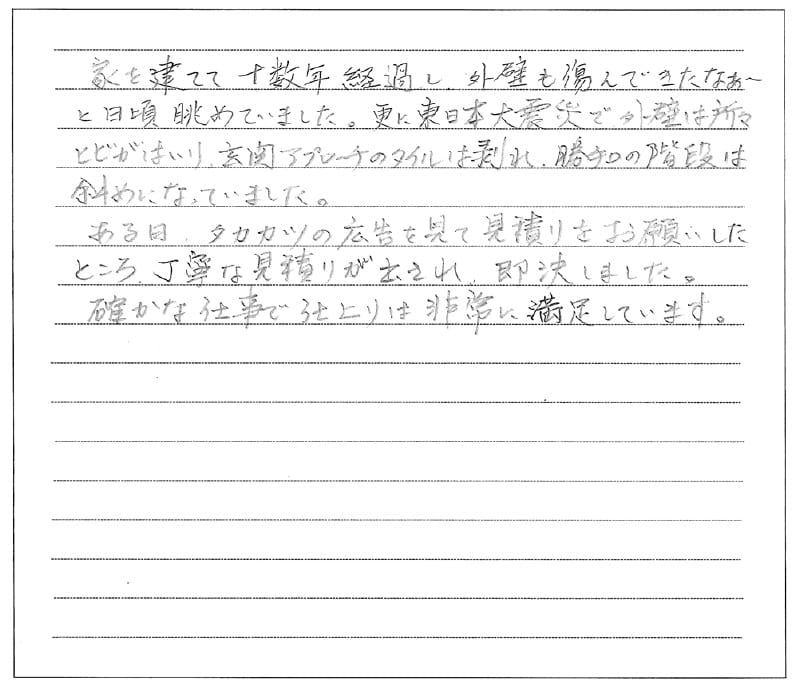 家を建てて十数年経過し、外壁も傷んできたなぁ〜
と日頃眺めていました。更に東日本大震災で外壁は所々
とビがはいり、玄関アプローチのタイルは剥れ、勝手口の階段は
斜めになっていました。
ある日、タカカツの広告を見て見積りをお願いした
ところ、丁寧な見積りが出され、即決しました。
確かな仕事で仕上りは非常に満足しています。